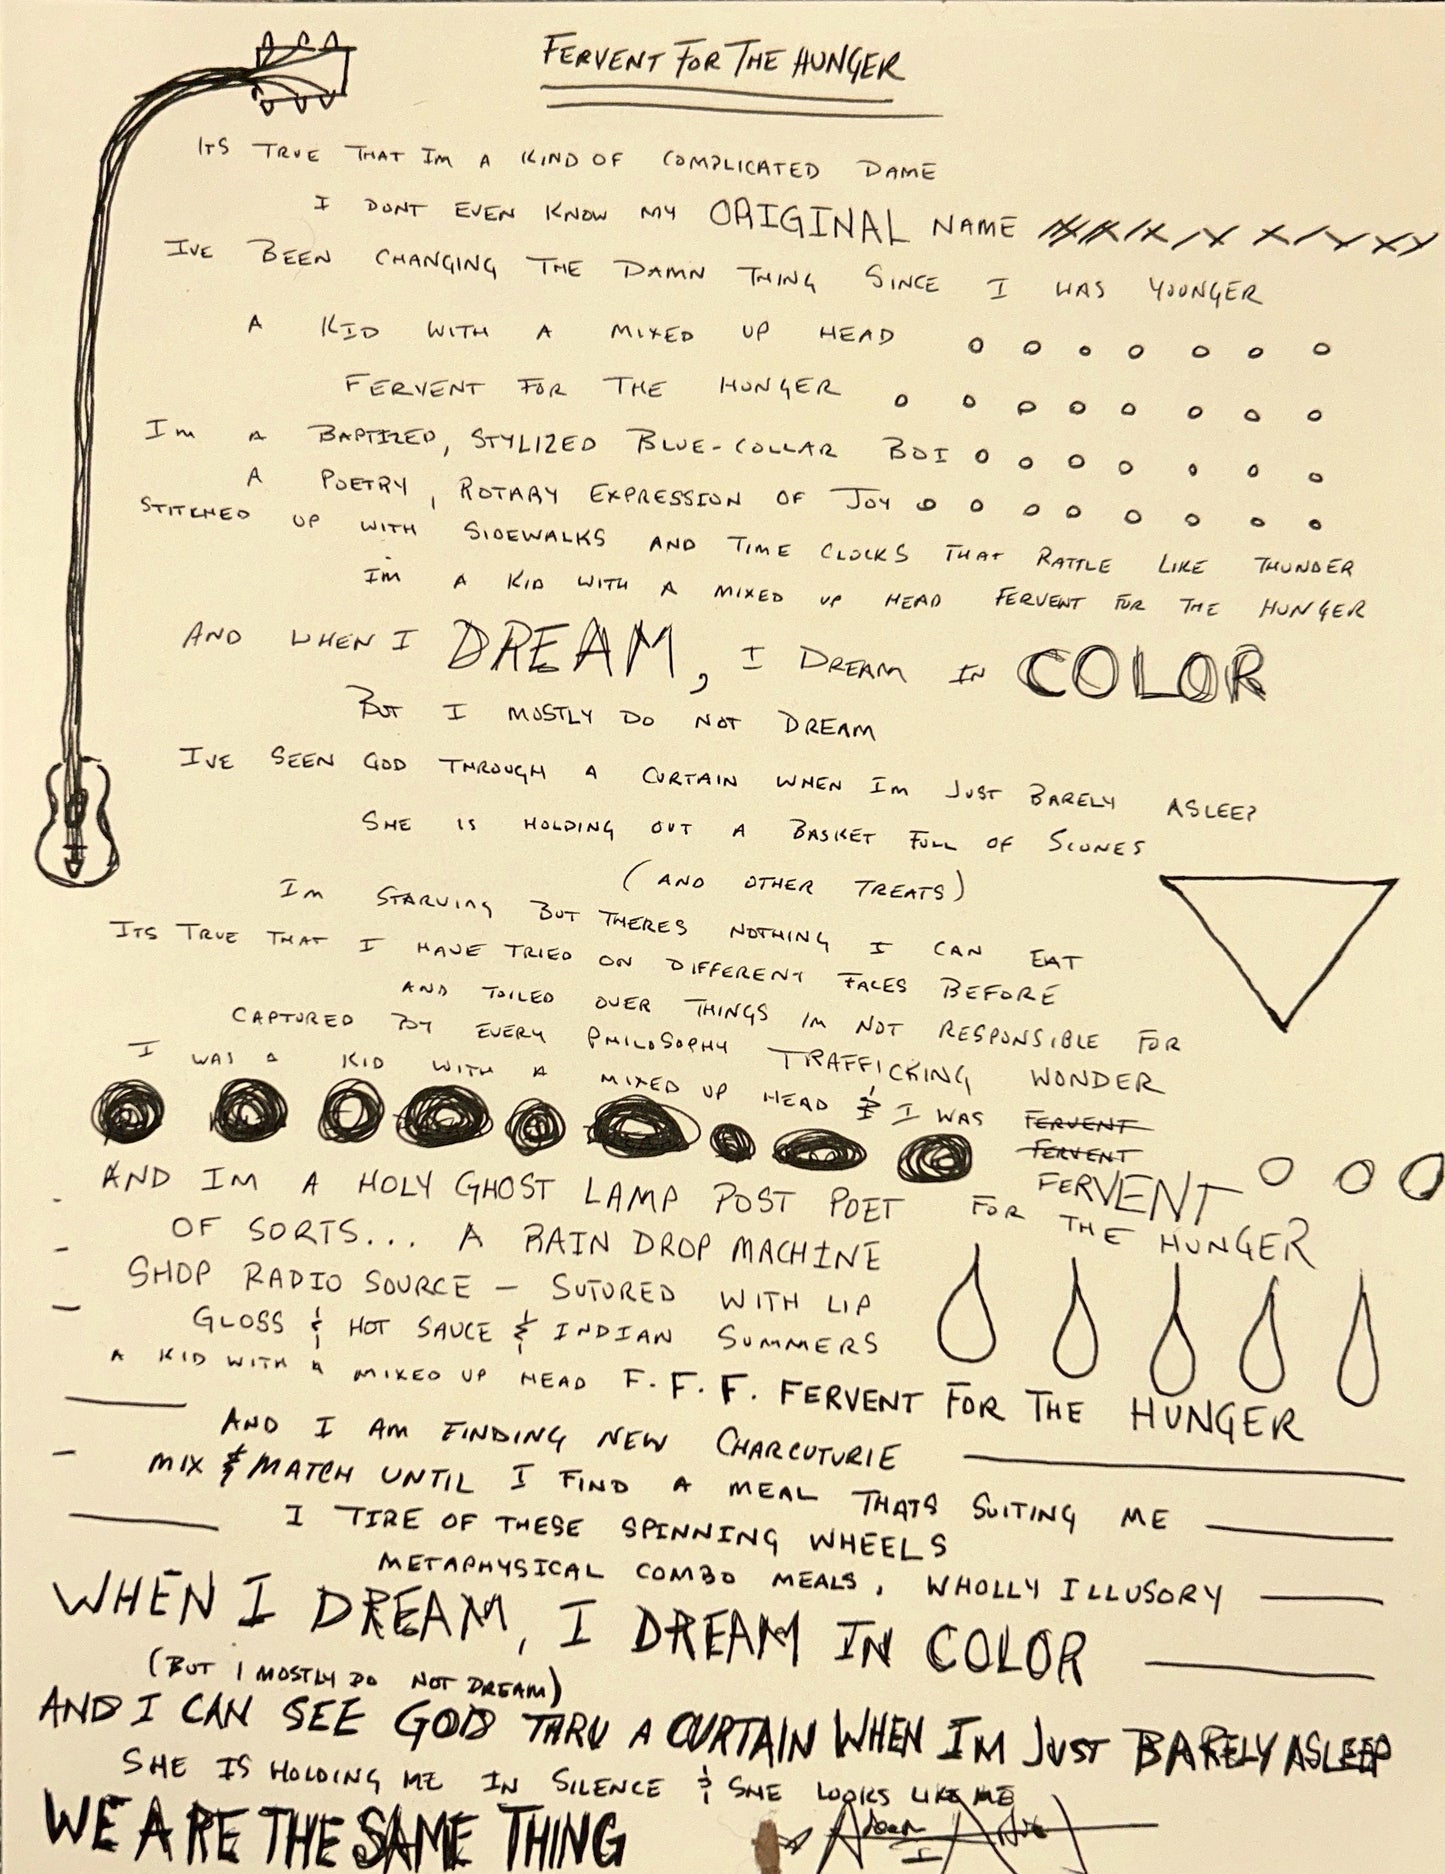 FERVENT FOR THE HUNGER
ITS TRUE THAT IM A KIND OF COMPLICATED DAME
I DONT EVEN KNOW MY ORIGINAL NAME
IVE BEEN CHANGING THE DAMN THING SINCE I WAS YOUNGER
A KID WITH A MIXED UP HEAD
FERVENT FOR THE HUNGER
IM A BAPTIZED, STYLIZED BLUE-COLLAR BOI
A POETRY, ROTARY EXPRESSION OF JOY
STITCHED UP WITH SIDEWALKS AND TIME CLOCKS THAT RATTLE LIKE THUNDER
I'M A KID WITH A MIXED UP HEAD FERVENT FOR THE HUNGER
AND WHEN I DREAM, I DREAM IN COLOR
BUT I MOSTLY DO NOT DREAM
IVE SEEN GOD THROUGH A CURTAIN WHEN IM JUST BARELY ASLEEP
SHE IS HOLDING OUT A BASKET FULL OF SCONES
(AND OTHER TREATS)
IM STARVING BUT THERES NOTHING I CAN EAT
ITS TRUE THAT I HAVE TRIED ON DIFFERENT FACES BEFORE
AND TOILED OVER THINGS IM NOT RESPONSIBLE FOR
CAPTURED BY EVERY PHILOSOPHY TRAFFICKING WONDER
I WAS A KID WITH A MIXED UP HEAD & I WAS FERVENT
FERVENT
FERVENT
FOR THE HUNGER
AND IM A HOLY GHOST LAMP POST POET
OF SORTS... A RAIN DROP MACHINE
SHOP RADIO SOURCE - SUTURED WITH LIP
GLOSS & HOT SAUCE & INDIAN SUMMERS
A KID WITH A MIXED UP HEAD F. F. F. FERVENT FOR THE HUNGER
AND I AM FINDING NEW CHARCUTURIE
MIX & MATCH UNTIL I FIND A MEAL THATS SUITING ME
I TIRE OF THESE SPINNING WHEELS
METAPHYSICAL COMBO MEALS, WHOLLY ILLUSORY
WHEN I DREAM, I DREAM IN COLOR
(BUT I MOSTLY DO NOT DREAM)
AND I CAN SEE GOD THRU A CURTAIN WHEN I'M JUST BARELY ASLEEP
SHE IS HOLDING ME IN SILENCE & SHE LOOKS LIKE ME
WE ARE THE SAME THING